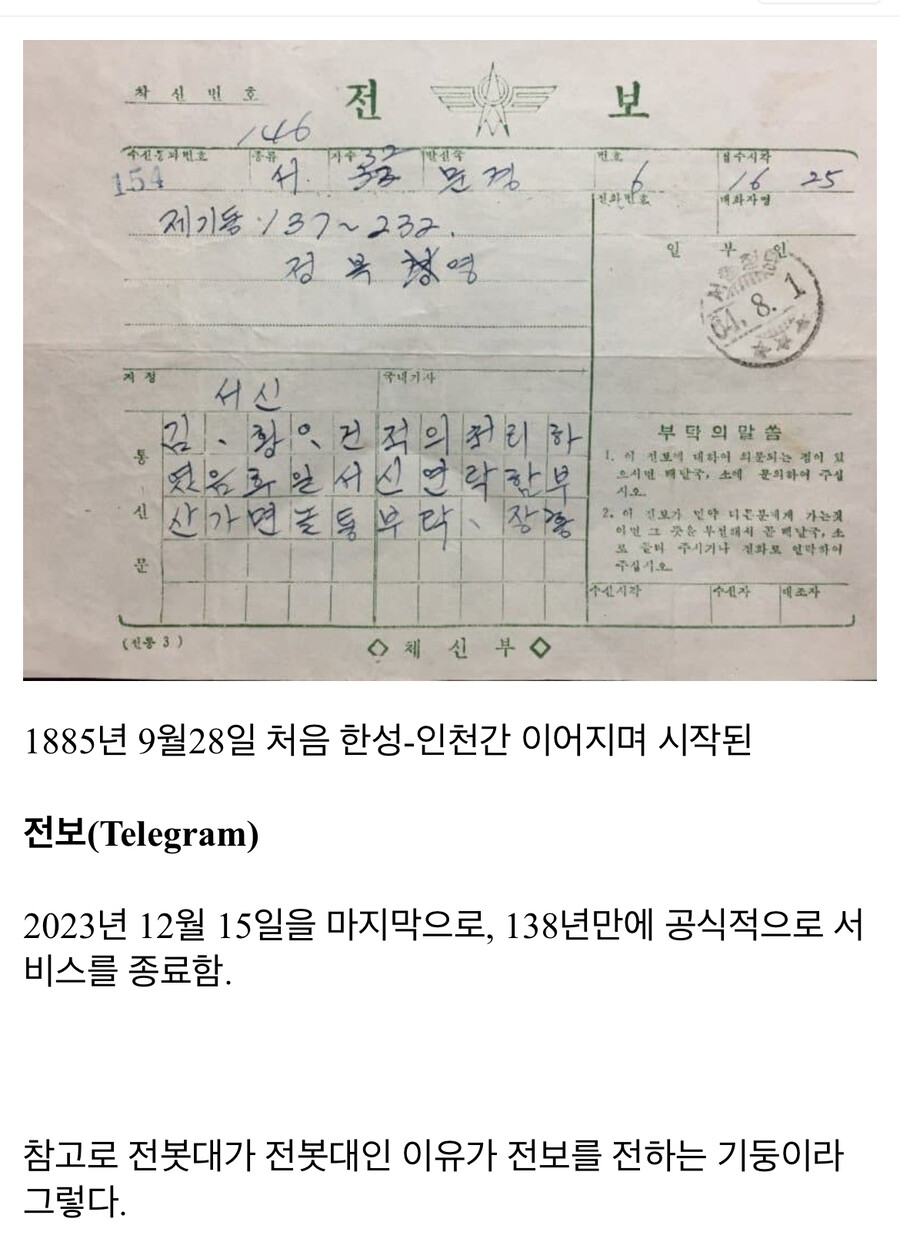 착신번호
전 보
146
수신통과번호 종류 자수 발신국 번호 접수시각
154 서. 32 문경 6 16 25
전화번호 대화자명
제기동 137~232.
정 복 영
일 부 인
64. 8. 1
지정 국내기사
서신
통신문
김、황、건적의처리하
였음화일서신연락함부
산가면 통부탁、장
부탁의말씀
1. 이 전보에 대하여 의문되는 점이 있
으시면 배달국, 소에 문의하여 주십
시오.
2. 이 전보가 만약 다른분에게 가는것
이면 그 뜻을 부전해서 곧 배달국, 소
로 돌려 주시거나 전화로 연락하여
주십시오.
수신시각 수신자 대조자
(전통 3)
◇ 체 신 부 ◇
1885년 9월28일 처음 한성-인천간 이어지며 시작된
전보(Telegram)
2023년 12월 15일을 마지막으로, 138년만에 공식적으로 서
비스를 종료함.
참고로 전봇대가 전봇대인 이유가 전보를 전하는 기둥이라
그렇다.